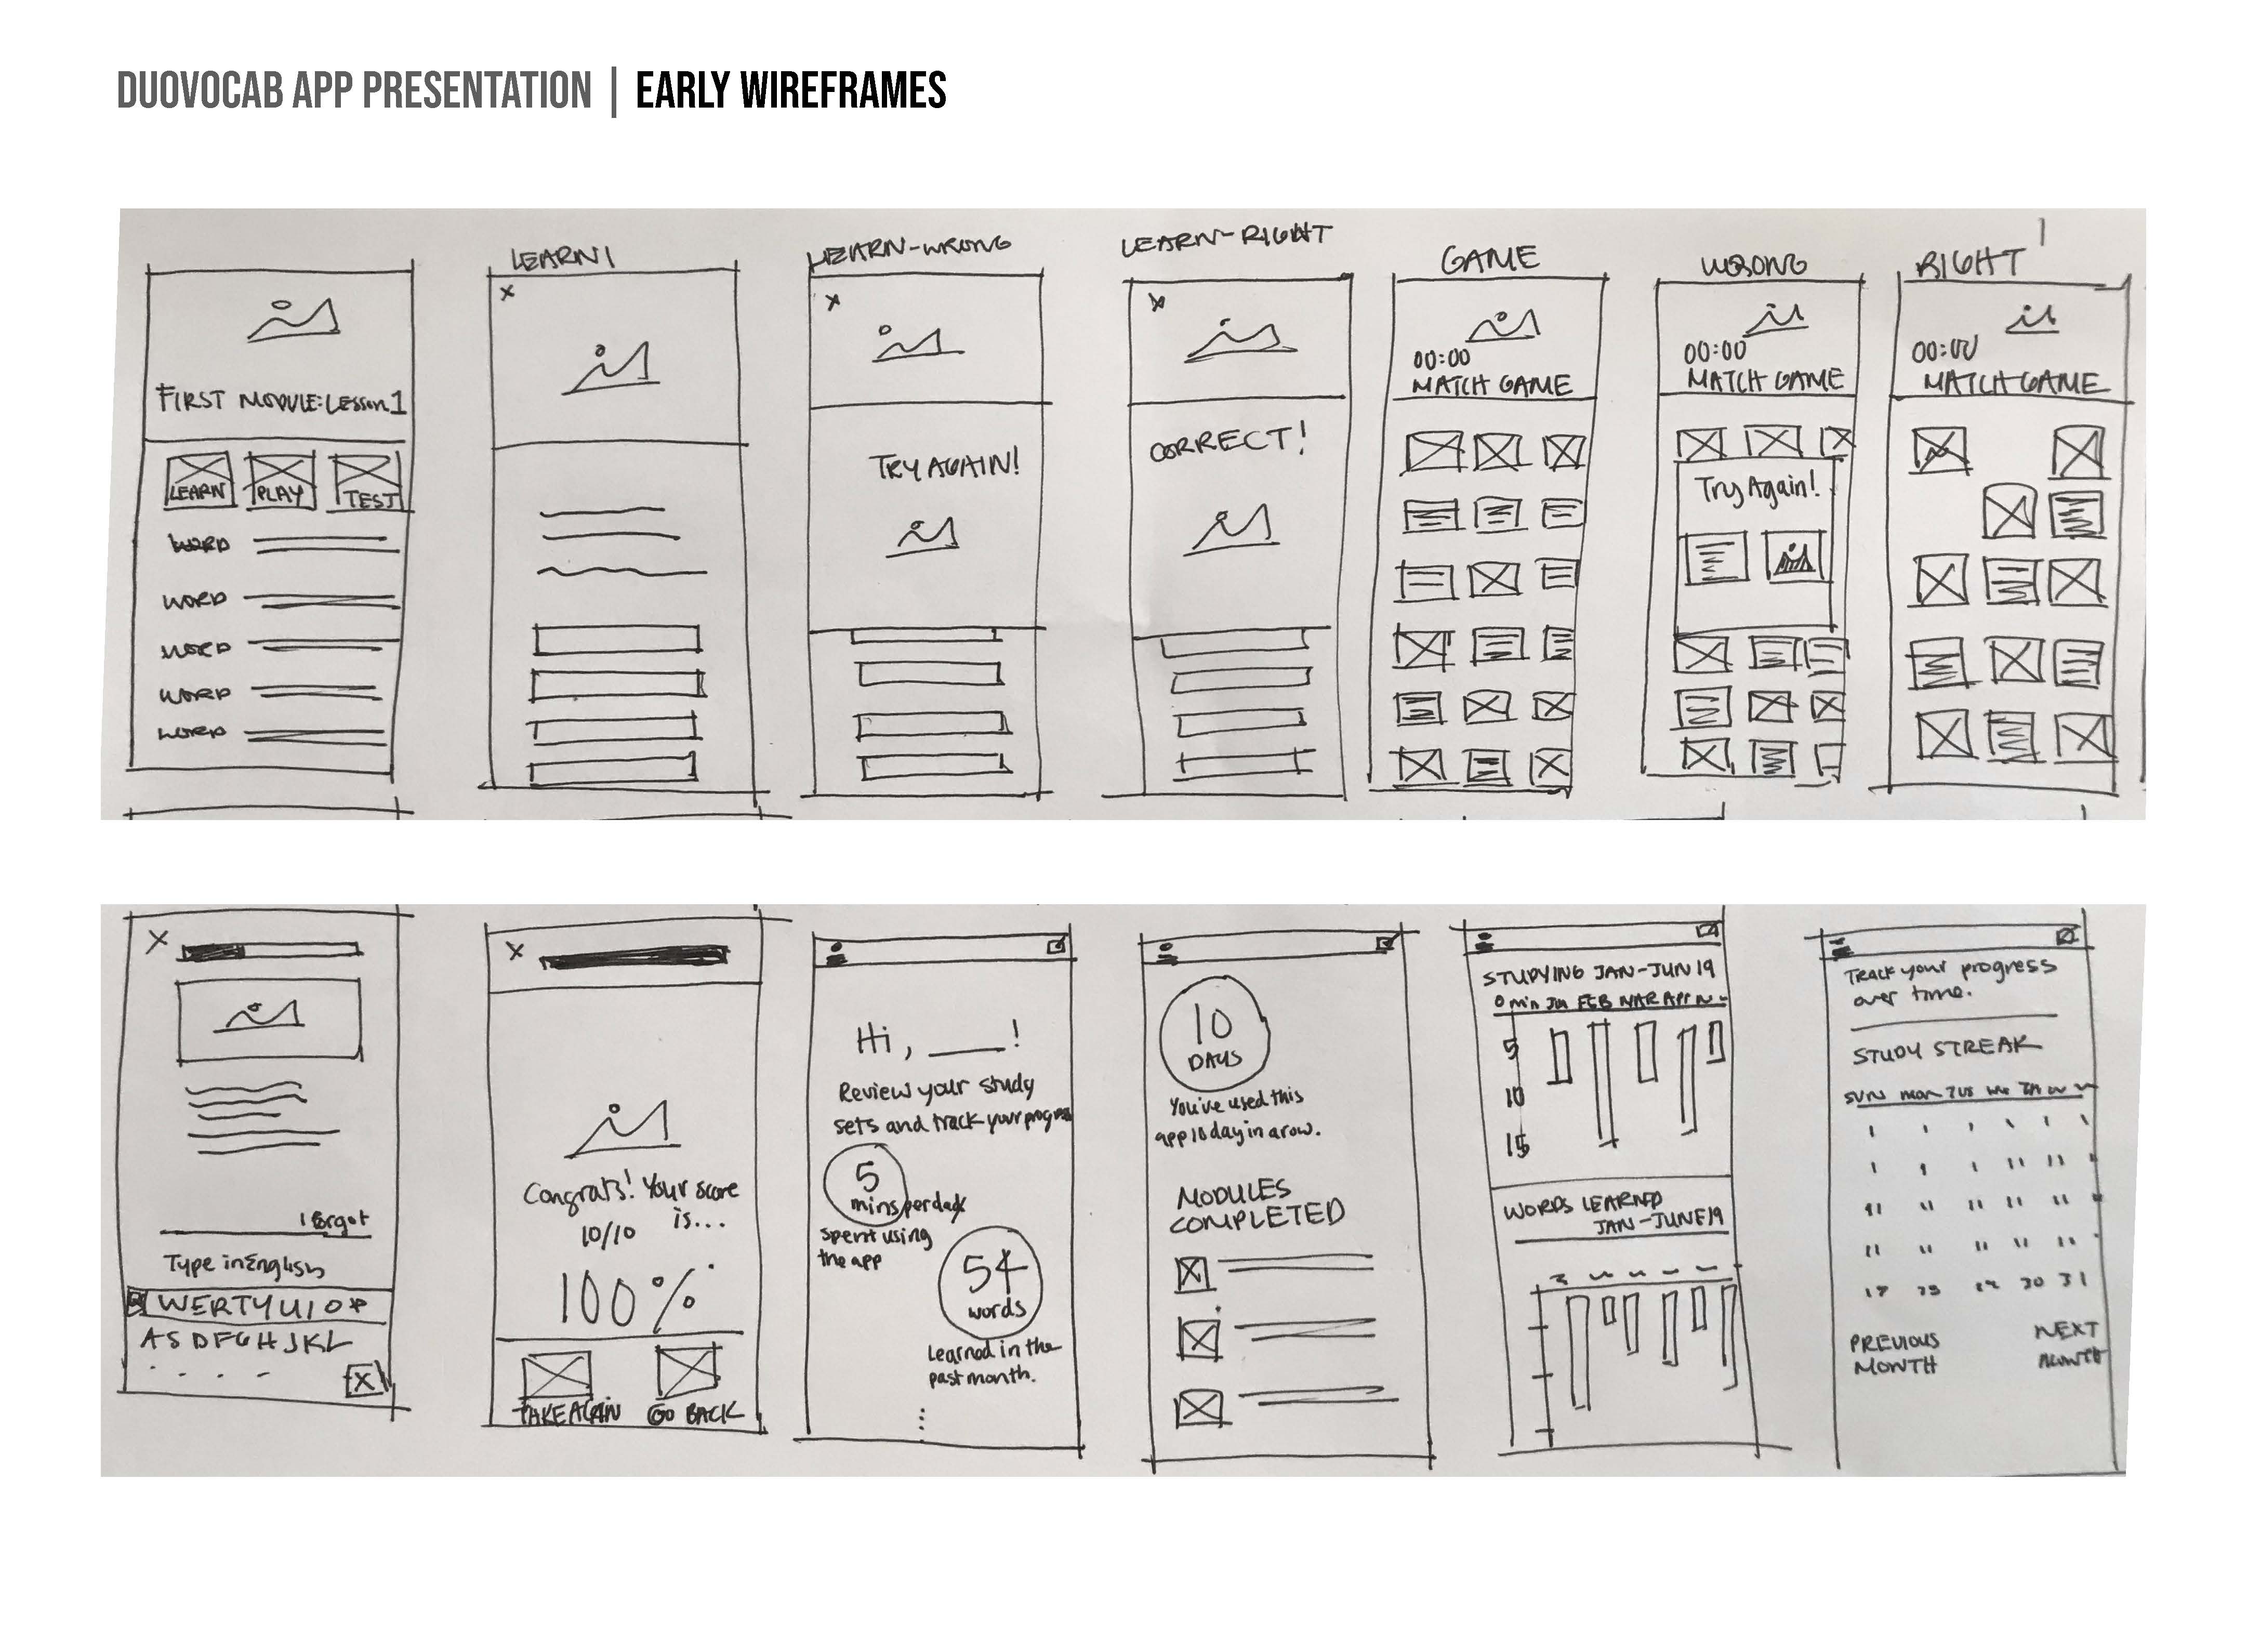 DUOVOCAB APP PRESENTATION | EARLY WIREFRAMES
FIRST MODULE: Lesson 1
LEARN PLAY TEST
WORD
WORD
WORD
WORD
WORD
LEARN 1
LEARN-WRONG
TRY AGAIN!
LEARN-RIGHT
CORRECT!
GAME
00:00
MATCH GAME
WRONG
00:00
MATCH GAME
Try Again!
RIGHT
00:00
MATCH GAME
I forgot
Type in English
WERTYUIOP
ASDFGHJKL
Congrats! Your score
is...
10/10
100%
TAKE AGAIN GO BACK
Hi, ___!
Review your study
sets and track your progress
5
mins per day
spent using
the app
54
words
Learned in the
past month.
10
DAYS
You've used this
app 10 day in a row.
MODULES
COMPLETED
STUDYING JAN-JUN 19
0 min Jan FEB MAR Apr
5
10
15
WORDS LEARNED
JAN-JUNE 19
Track your progress
over time.
STUDY STREAK
SUN mon TUS
30 31
PREVIOUS
MONTH
NEXT
MONTH